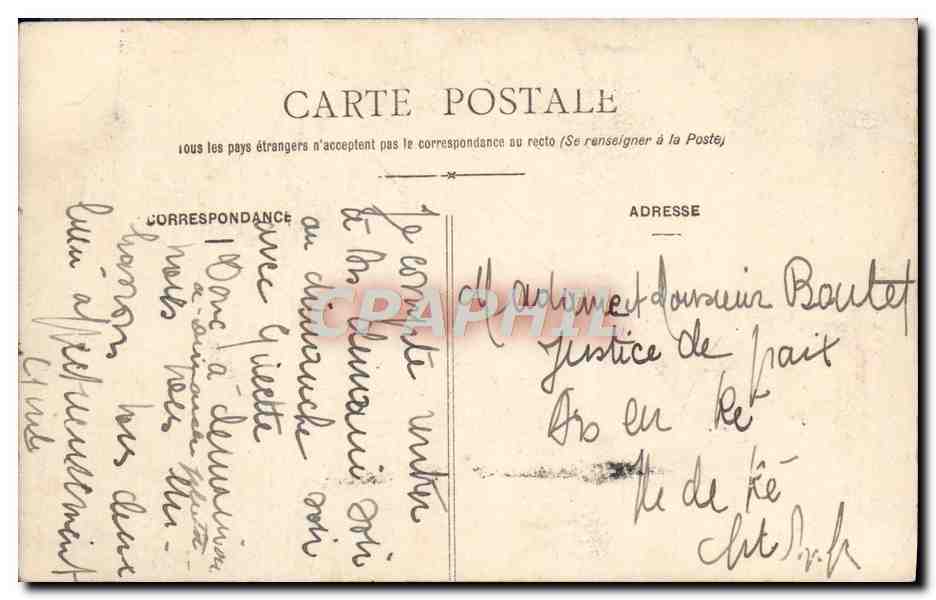 CARTE POSTALE
Tous les pays étrangers n'acceptent pas la correspondance au recto (Se renseigner à la Poste)
CORRESPONDANCE
ADRESSE
Je compte rentrer
à Ars demain soir
ou dimanche soir
avec Ginette
Donc à demain
ou dimanche
nous vous
tous deux
affectueusement
Madame et Monsieur Boutet
Justice de paix
Ars en Ré
Ile de Ré
CPAPHIL